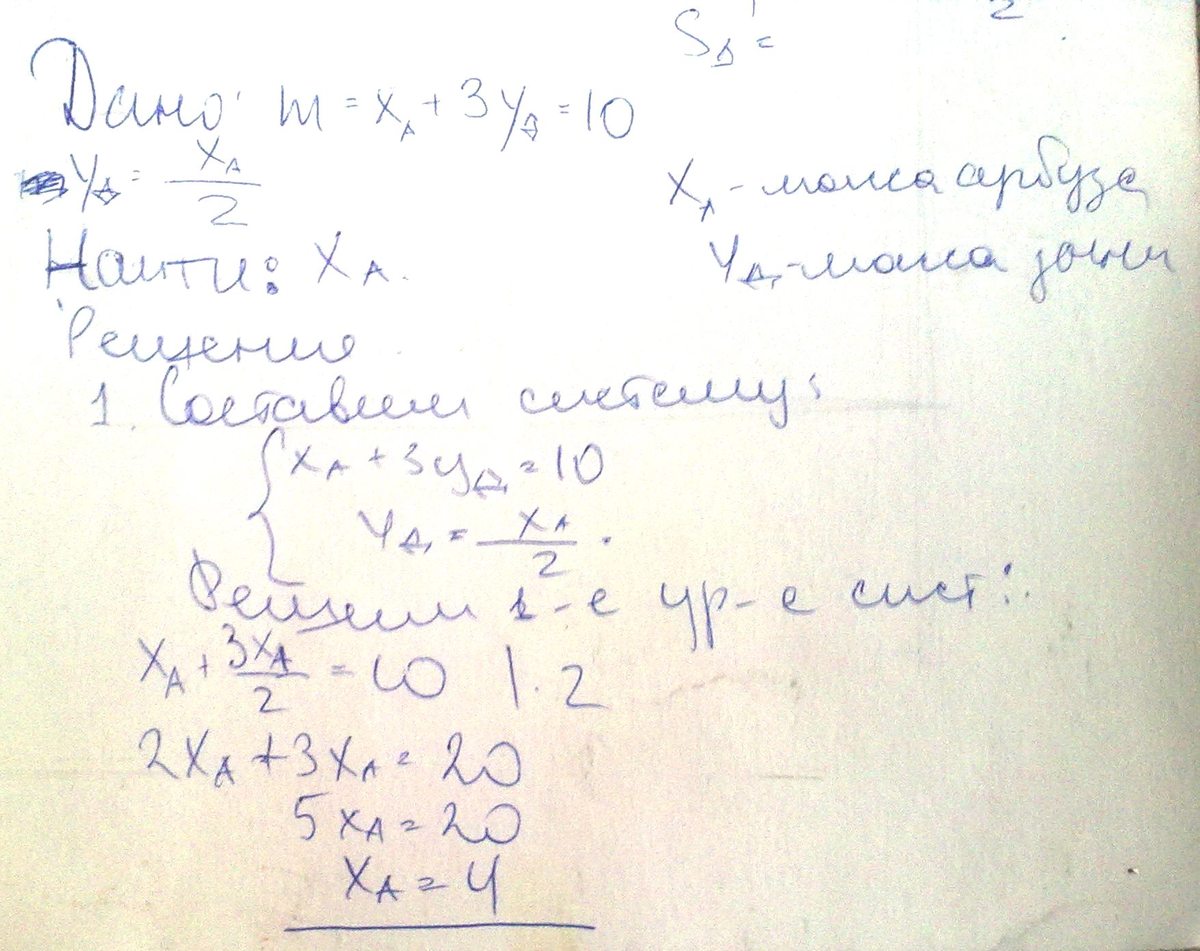 S_Δ =
2
Дано: m = x_A + 3y_Д = 10
y_Д = x_A / 2
x_A - масса арбуза
Найти: x_A.
y_Д - масса дыни
Решение
1. Составим систему:
{ x_A + 3y_Д = 10
y_Д = x_A / 2.
Решим 1-е ур-е сист:
x_A + 3x_A / 2 = 10 | · 2
2x_A + 3x_A = 20
5x_A = 20
x_A = 4